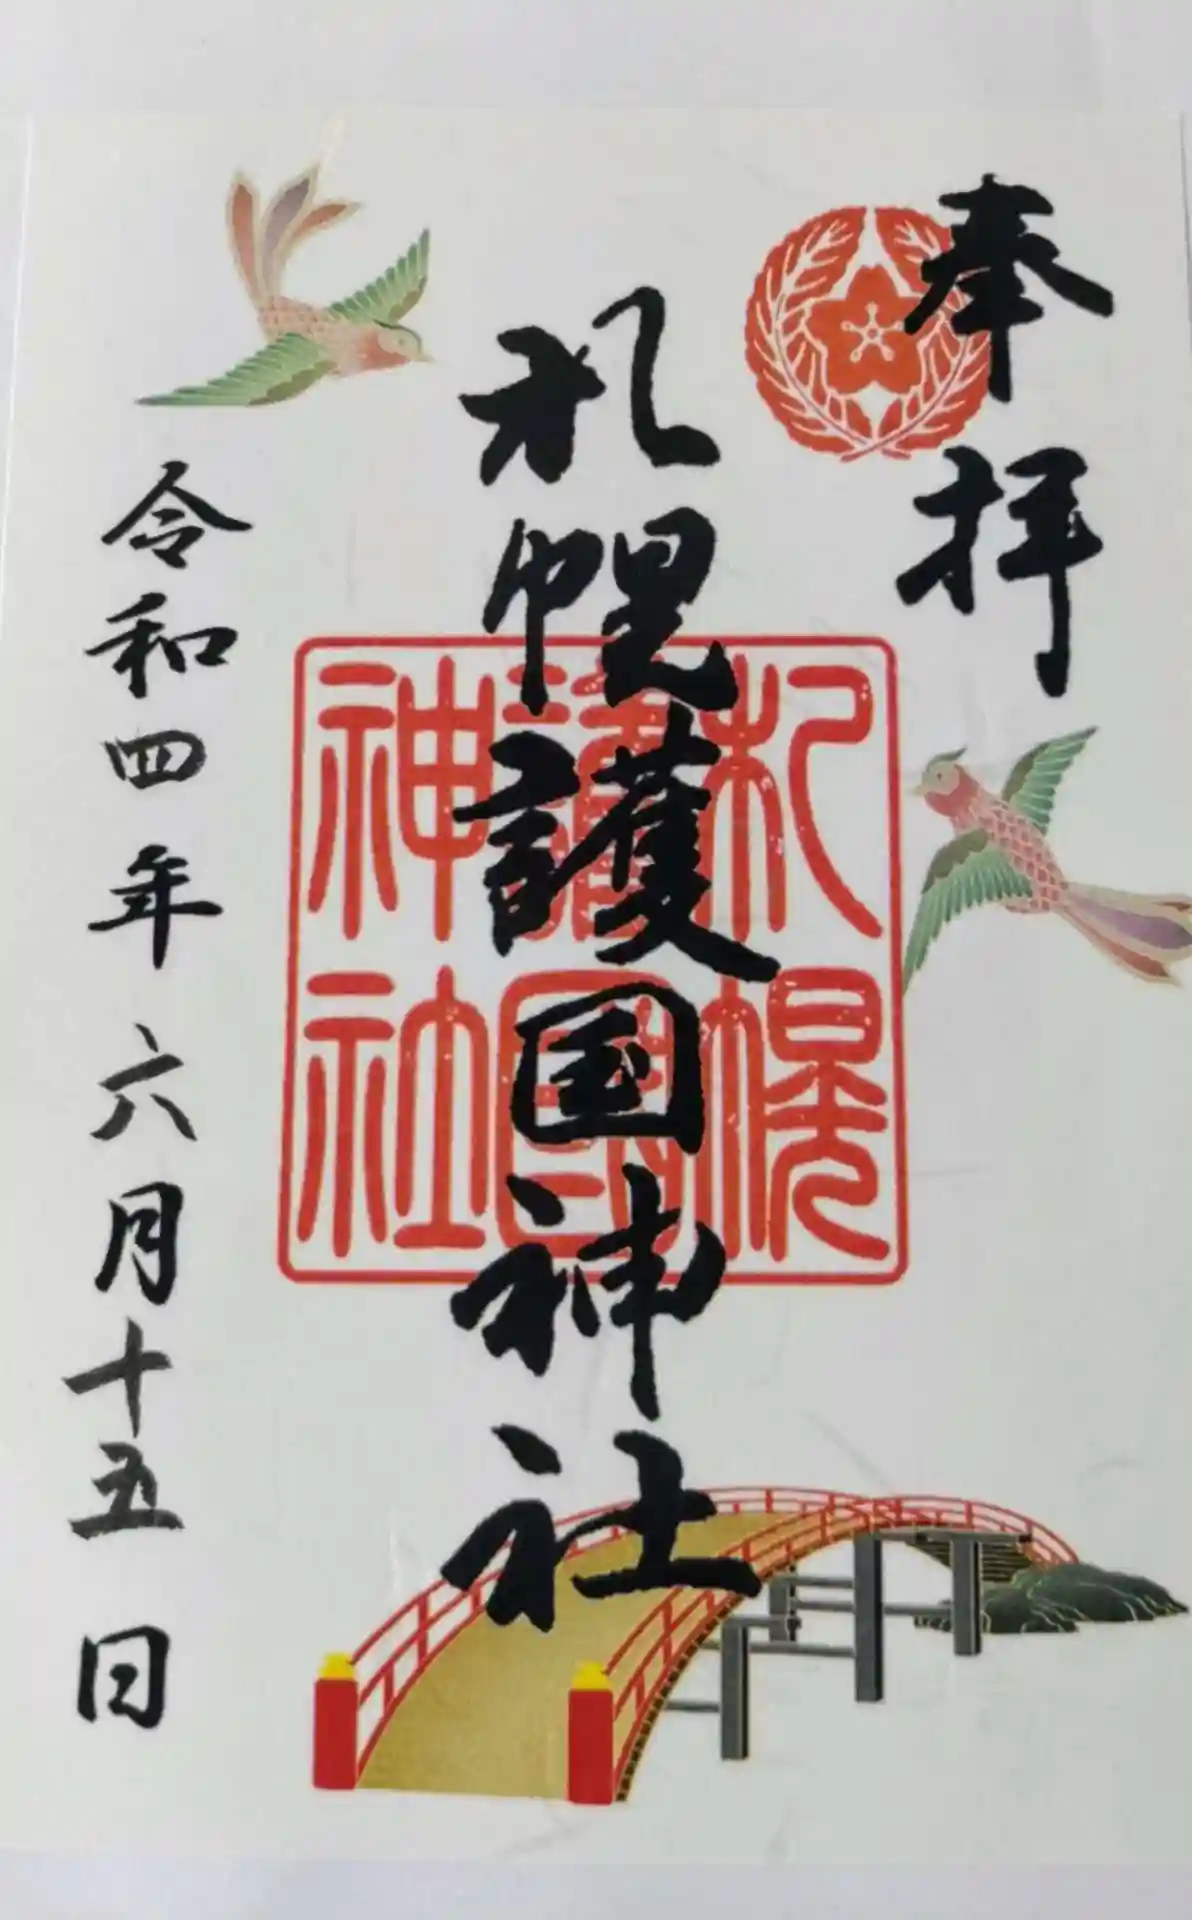 奉拝
札幌護国神社
札幌
護國
神社
令和四年六月十五日